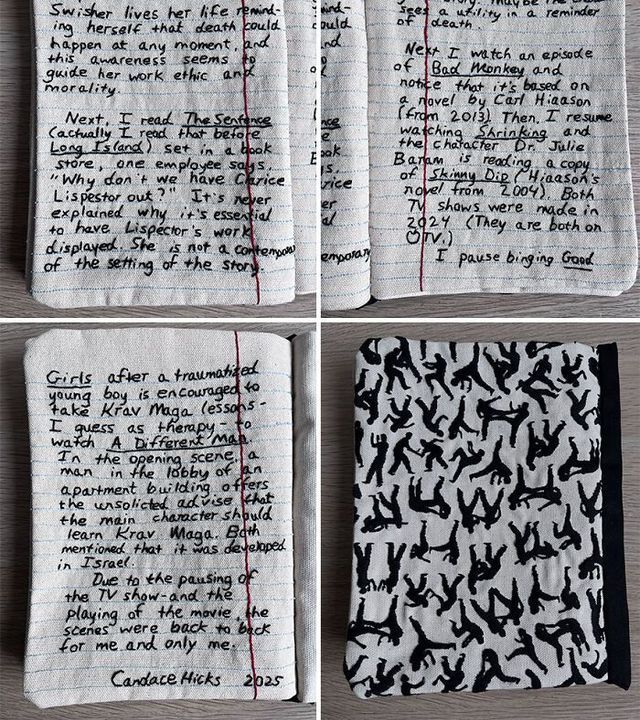 Swisher lives her life remind-
ing herself that death could
happen at any moment, and
this awareness seems to
guide her work ethic and
morality.
Next, I read The Sentence
(actually I read that before
Long Island) set in a book
store, one employee says,
"Why don't we have Clarice
Lispestor out?" It's never
explained why it's essential
to have Lispector's work
displayed. She is not a contemporary
of the setting of the story.
sees a utility in a reminder
of death.
Next I watch an episode
of Bad Monkey and
notice that it's based on
a novel by Carl Hiaason
(from 2013). Then, I resume
watching Shrinking and
the character Dr. Julie
Baram is reading a copy
of Skinny Dip (Hiaason's
novel from 2004). Both
TV shows were made in
2024 (They are both on
TV.)
I pause binging Good
Girls after a traumatized
young boy is encouraged to
take Krav Maga lessons-
I guess as therapy - to
watch A Different Man.
In the opening scene, a
man in the lobby of an
apartment building offers
the unsolicted advise that
the main character should
learn Krav Maga. Both
mentioned that it was developed
in Israel.
Due to the pausing of
the TV show-and the
playing of the movie, the
scenes were back to back
for me and only me.
Candace Hicks 2025